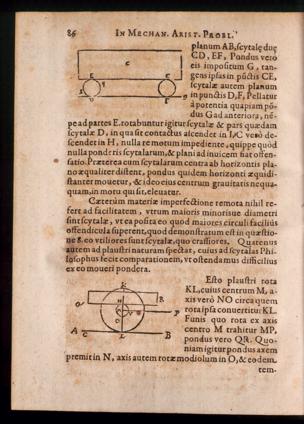 86 IN MECHAN. ARIST. PROBL.
planum AB, scytalę duę
CD, EF, Pondus vero
eis impositum G, tan-
gens ipsas in pūctis CE,
scytalæ autem planum
in punctis DF, Pellatur
à potentia quapiam pō-
dus G ad anteriora, nē-
pe ad partes E. rotabuntur igitur scytalæ & pars quædam
scytalæ D, in qua sit contactus ascendet in I, C verò de-
scendet in H, nulla re motum impediente, quippe quòd
nulla ponderis scytalarum, & plani ad inuicem fiat offen-
satio. Præterea cum scytalarum centra ab horizontis pla-
no æqualiter distent, pondus quidem horizonti æquidi-
stanter mouetur, & ideo eius centrum grauitatis nequa-
quam, in motu qui fit, eleuatur.
Cæterùm materiæ imperfectione remota nihil re-
fert ad facilitatem, vtrum maioris minorisue diametri
sint scytalæ, vt ea posita eo quod maiores circuli facilius
offendicula superent, quod demonstratum est in quæstio-
ne 8. eo vtiliores sunt scytalæ, quo crassiores. Quatenus
autem ad plaustri naturam spectat, cuius ad scytalas Phi-
losophus fecit comparationem, vt ostendamus difficilius
ex eo moueri pondera.
Esto plaustri rota
KL, cuius centrum M, a-
xis verò NO circa quem
rota ipsa conuertitur KL.
Funis quo rota ex axis
centro M trahitur MP,
pondus vero QR. Quo-
niam igitur pondus axem
premit in N, axis autem rotæ modiolum in O, & eodem
tem-